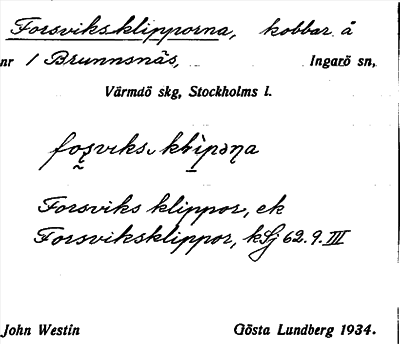 Forsviksklipporna, kobbar å
nr 1 Brunnsnäs, Ingarö sn,
Värmdö skg, Stockholms l.
Forsviks klippor, ek
Forsviksklippor, kSj 62.9.III
John Westin Gösta Lundberg 1934.